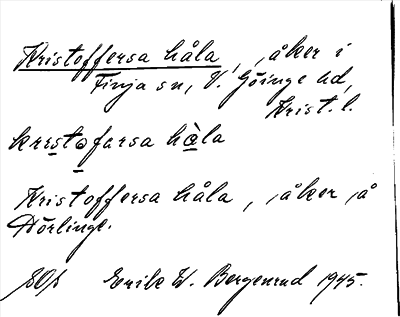 Kristoffersa håla, åker i
Finja sn, V. Göinge hd,
Krist. l.
kristofarsa håla
Kristoffersa håla, åker å
Hörlinge.
Erik W. Bergenrud 1945.